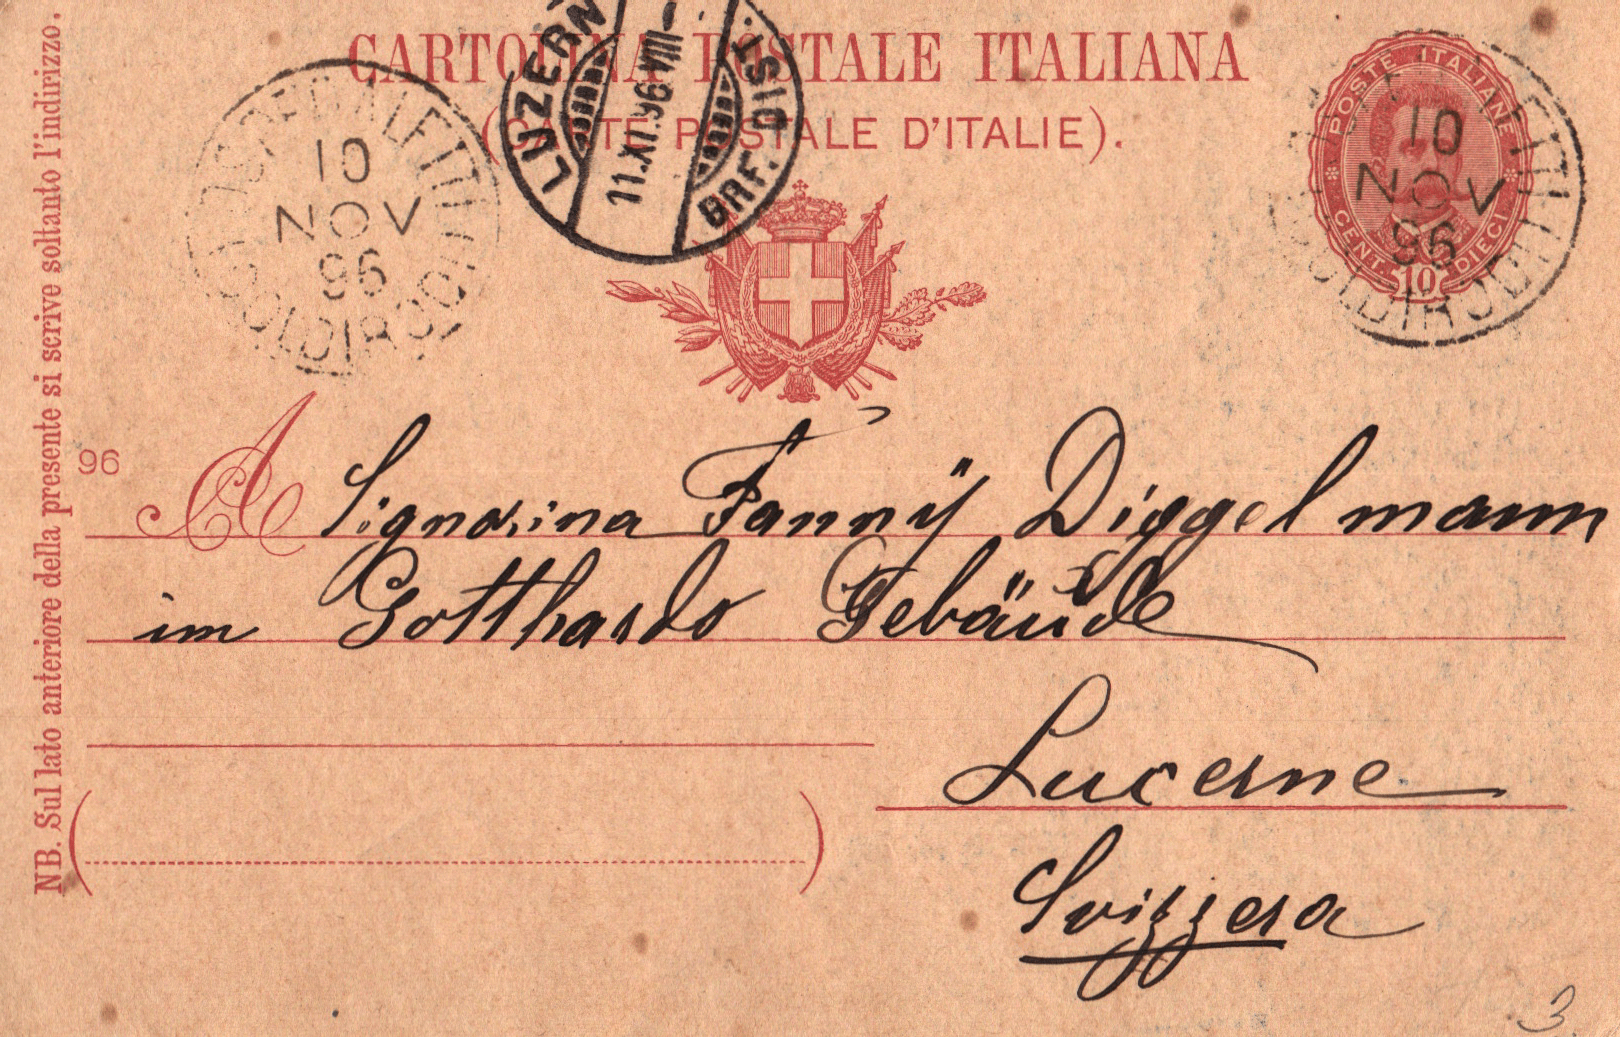 CARTOLINA POSTALE ITALIANA
(CARTE POSTALE D'ITALIE).
NB. Sul lato anteriore della presente si scrive soltanto l'indirizzo.
10
NOV
96
COLDIRODI
LUZERN
11.XI.96.VIII–
BRF. DIST.
POSTE ITALIANE
CENT. 10 DIECI
10
NOV
96
COLDIRODI
96
A Signorina Fannÿ Diggelmann
im Gotthardo Gebäude
Lucerne
Svizzera
3